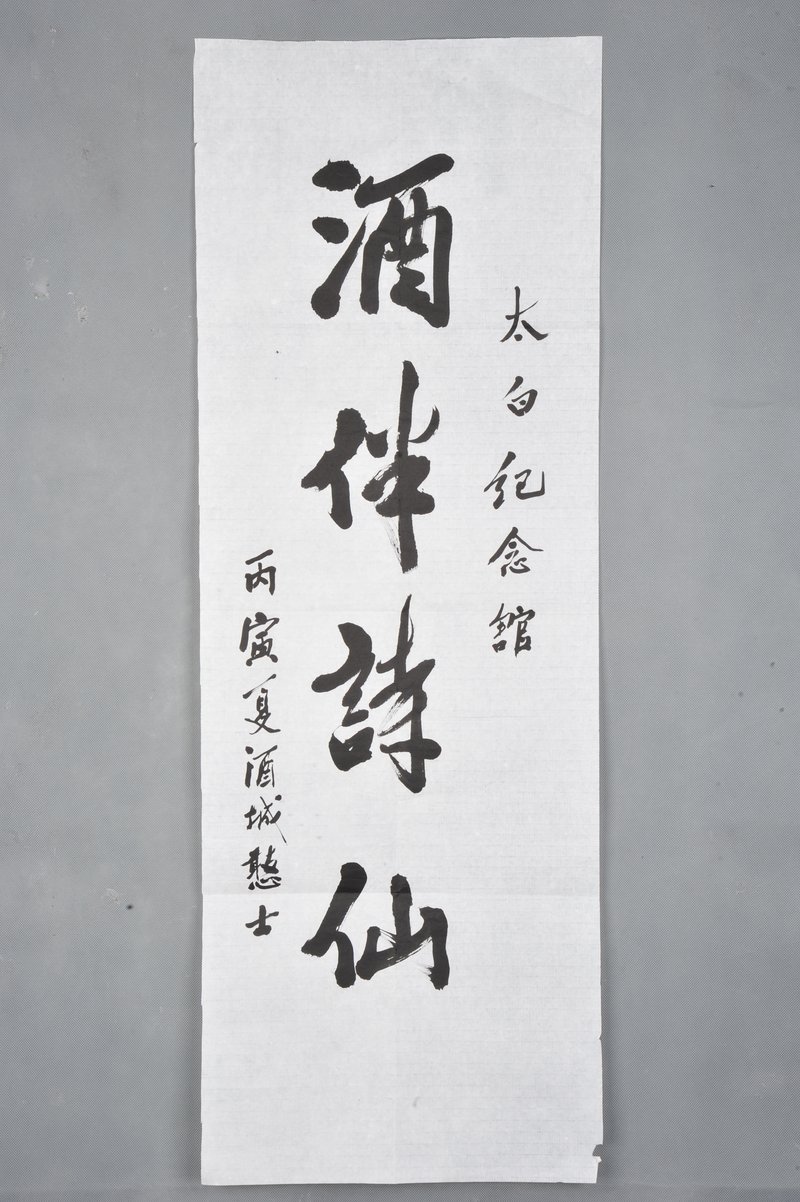 太白纪念館
酒伴詩仙
丙寅夏酒城憨士